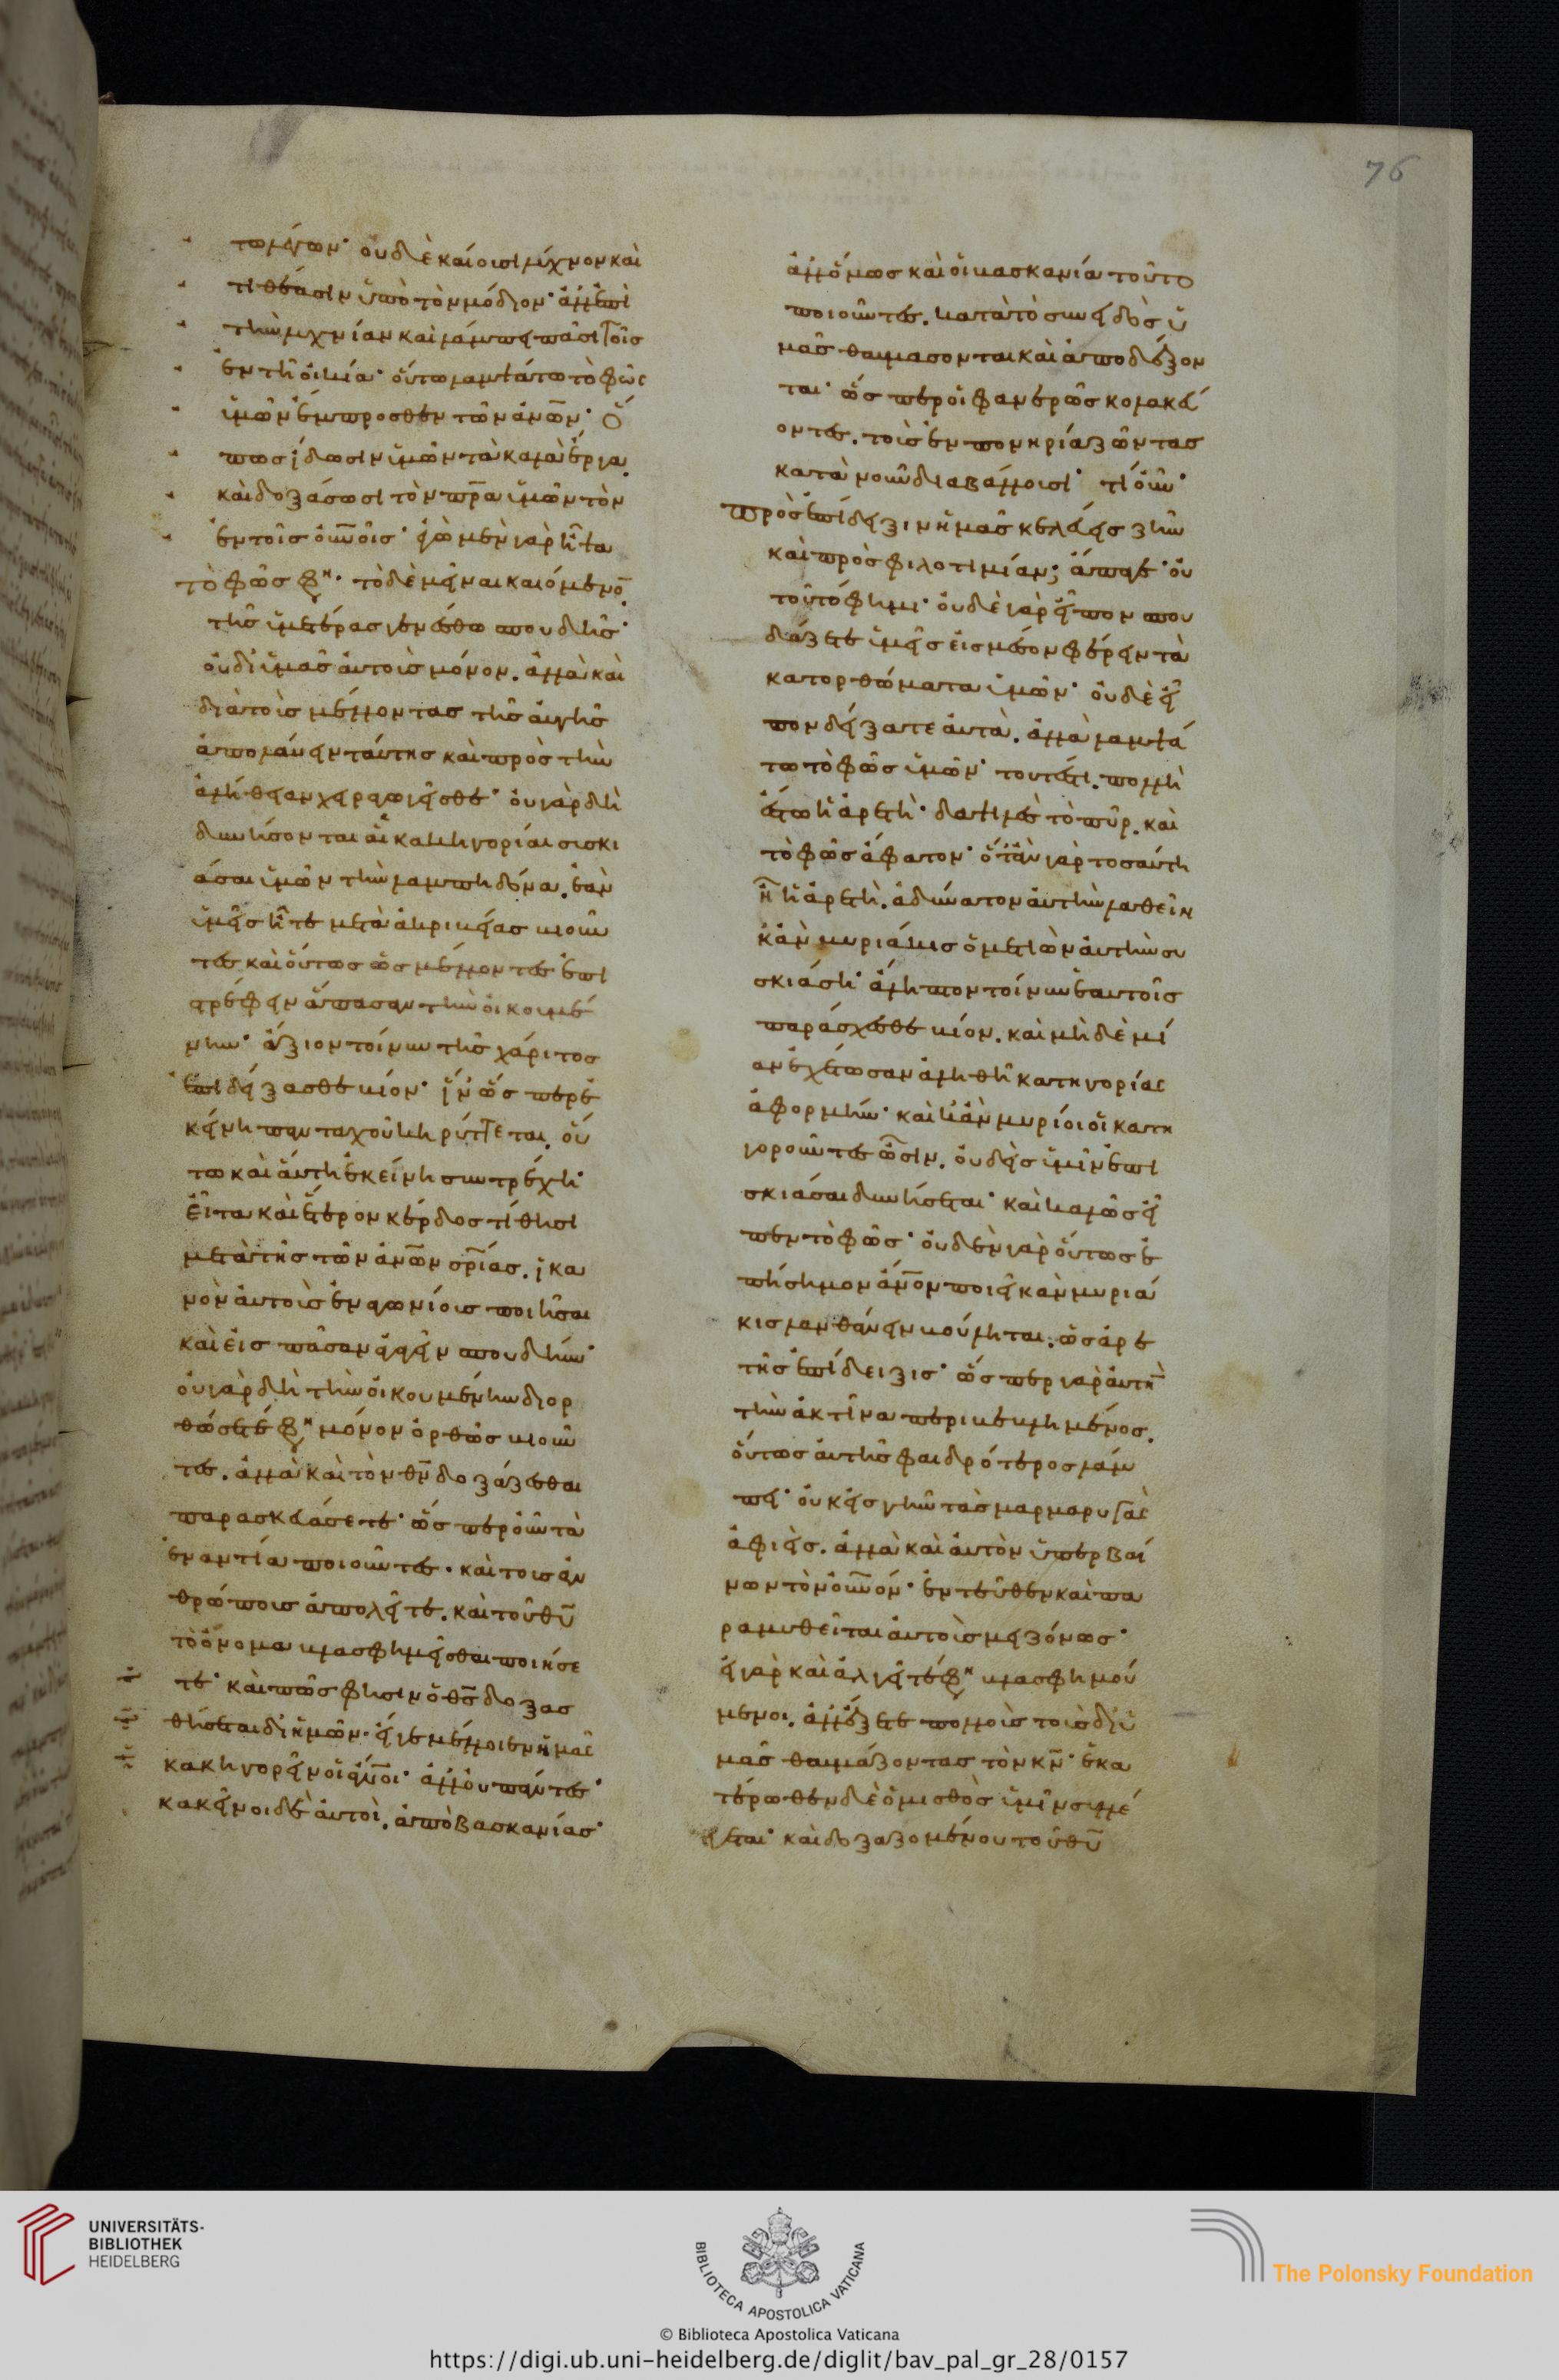 τω λέγων· οὐδὲ καίουσι λύχνον καὶ
τιθέασιν ὑπὸ τὸν μόδιον· ἀλλ' ἐπὶ
τὴν λυχνίαν καὶ λάμπει πᾶσι τοῖς
ἐν τῆ οἰκία· οὕτω λαμψάτω τὸ φῶς
ὑμῶν ἔμπροσθεν τῶν ἀν̅ω̅ν· ὅ
πως ἴδωσιν ὑμῶν τὰ καλὰ ἔργα.
καὶ δοξάσωσι τὸν π̅ρ̅α ὑμῶν τὸν
ἐν τοῖς οὐ̅ν̅οῖς· ἐγὼ μὲν γὰρ ἧψα
τὸ φῶς φη· τὸ δὲ μεῖναι καιόμενο̅
τῆς ὑμετέρας γενέσθω σπουδῆς·
οὐ δι' ὑμᾶς αὐτοὺς μόνον. ἀλλὰ καὶ
διὰ τοὺς μέλλοντας τῆς αὐγῆς
ἀπολαύειν ταύτης καὶ πρὸς τὴν
ἀλήθειαν χειραγωγεῖσθε· οὐ γὰρ δὴ
δυνήσονται αἱ κατηγορίαι συσκι
άσαι ὑμῶν τὴν λαμπηδόνα. ἐὰν
ὑμεῖς ἦτε μετὰ ἀκριβείας βιοῦν
τες καὶ οὕτως ὡς μέλλοντες ἐπι
στρέφειν ἅπασαν τὴν οἰκουμέ
νην· ἄξιον τοίνυν τῆς χάριτος
ἐπιδείξασθε βίον· ἵν' ὥσπερ ἐ
κείνη πανταχοῦ κηρύττεται. οὕ
τω καὶ αὕτη ἐκείνη συντρέχη·
εἶτα καὶ ἕτερον κέρδος τίθησι
μετὰ τῆς τῶν ἀν̅ω̅ν σ̅ρ̅ίας. ἱκα
νὸν αὐτοὺς ἐναγωνίους ποιῆσαι
καὶ εἰς πᾶσαν ἀγαγεῖν σπουδήν·
οὐ γὰρ δὴ τὴν οἰκουμένην διορ
θώσετέ φη μόνον ὀρθῶς βιοῦν
τες. ἀλλὰ καὶ τὸν θ̅ν̅ δοξάζεσθαι
παρασκευάσετε· ὥσπερ οὖν τὰ
ἐναντία ποιοῦντες. καὶ τοὺς ἀν
θρώπους ἀπολεῖτε. καὶ τοῦ θ̅υ̅
τὸ ὄνομα βλασφημεῖσθαι ποιήσε
τε· καὶ πῶς φησιν ὁ θ̅ς̅ δοξασ
θήσεται δι' ἡμῶν· εἴ γε μέλλοιεν ἡμᾶς
κακηγορεῖν οἱ ἄν̅οι· ἀλλ' οὐ πάντες·
κἀκεῖνοι δὲ αὐτοὶ. ἀπὸ βασκανίας·
ἀλλ' ὅμως καὶ οἱ βασκανία τοῦτο
ποιοῦντες. κατὰ τὸ συνειδὸς ὑ
μᾶς θαυμάσονται καὶ ἀποδέξον
ται· ὥσπερ οἱ φανερῶς κολακεύ
οντες. τοὺς ἐν πονηρία ζῶντας
κατὰ νοῦν διαβάλλουσι· τί οὖν·
πρὸς ἐπίδειξιν ἡμᾶς κελεύεις ζῆν
καὶ πρὸς φιλοτιμίαν; ἄπαγε· οὐ
τοῦτό φημι· οὐδὲ γὰρ εἶπον σπου
δάζετε ὑμεῖς εἰς μέσον φέρειν τὰ
κατορθώματα ὑμῶν· οὐδὲ εἶ
πον δείξατε αὐτὰ. ἀλλὰ λαμψά
τω τὸ φῶς ὑμῶν· τουτέστι. πολλὴ
ἔστω ἡ ἀρετὴ· δαψιλὲς τὸ πῦρ. καὶ
τὸ φῶς ἄφατον· ὅταν γὰρ τοσαύτη
ἦ ἡ ἀρετὴ. ἀδύνατον αὐτὴν λαθεῖν
κἂν μυριάκις ὁ μετιὼν αὐτὴν συ
σκιάση· ἄληπτον τοίνυν ἑαυτοῖς
παράσχεσθε βίον. καὶ μηδὲ μί
αν ἐχέτωσαν ἀληθῆ κατηγορίας
ἀφορμήν· καὶ κἂν μυρίοι οἱ κατη
γοροῦντες ὦσιν. οὐδεὶς ὑμῖν ἐπι
σκιάσαι δυνήσεται· καὶ καλῶς εἶ
πεν τὸ φῶς· οὐδὲν γὰρ οὕτως ἐ
πίσημον ἄν̅ον ποιεῖ κἂν μυριά
κις λανθάνειν βούληται. ὡς ἀρε
τῆς ἐπίδειξις· ὥσπερ γὰρ αὐτὴ̅
τὴν ἀκτῖνα περιβεβλημένος.
οὕτως αὐτῆς φαιδρότερος λάμ
πει· οὐκ εἰς γῆν τὰς μαρμαρυγὰς
ἀφιεὶς. ἀλλὰ καὶ αὐτὸν ὑπερβαί
νων τὸν οὐ̅ν̅όν· ἐντεῦθεν καὶ πα
ραμυθεῖται αὐτοὺς μειζόνως·
εἰ γὰρ καὶ ἀλγεῖτέ φη βλασφημού
μενοι. ἀλλ' ἕξετε πολλοὺς τοὺς δι' ὑ
μᾶς θαυμάζοντας τὸν κ̅ν̅· ἑκα
τέρωθεν δὲ ὁ μισθὸς ὑμῖν συλλέ
γεται· καὶ δοξαζομένου τοῦ θ̅υ̅
76
UNIVERSITÄTS-
BIBLIOTHEK
HEIDELBERG
BIBLIOTECA APOSTOLICA VATICANA
The Polonsky Foundation
© Biblioteca Apostolica Vaticana
https://digi.ub.uni-heidelberg.de/diglit/bav_pal_gr_28/0157